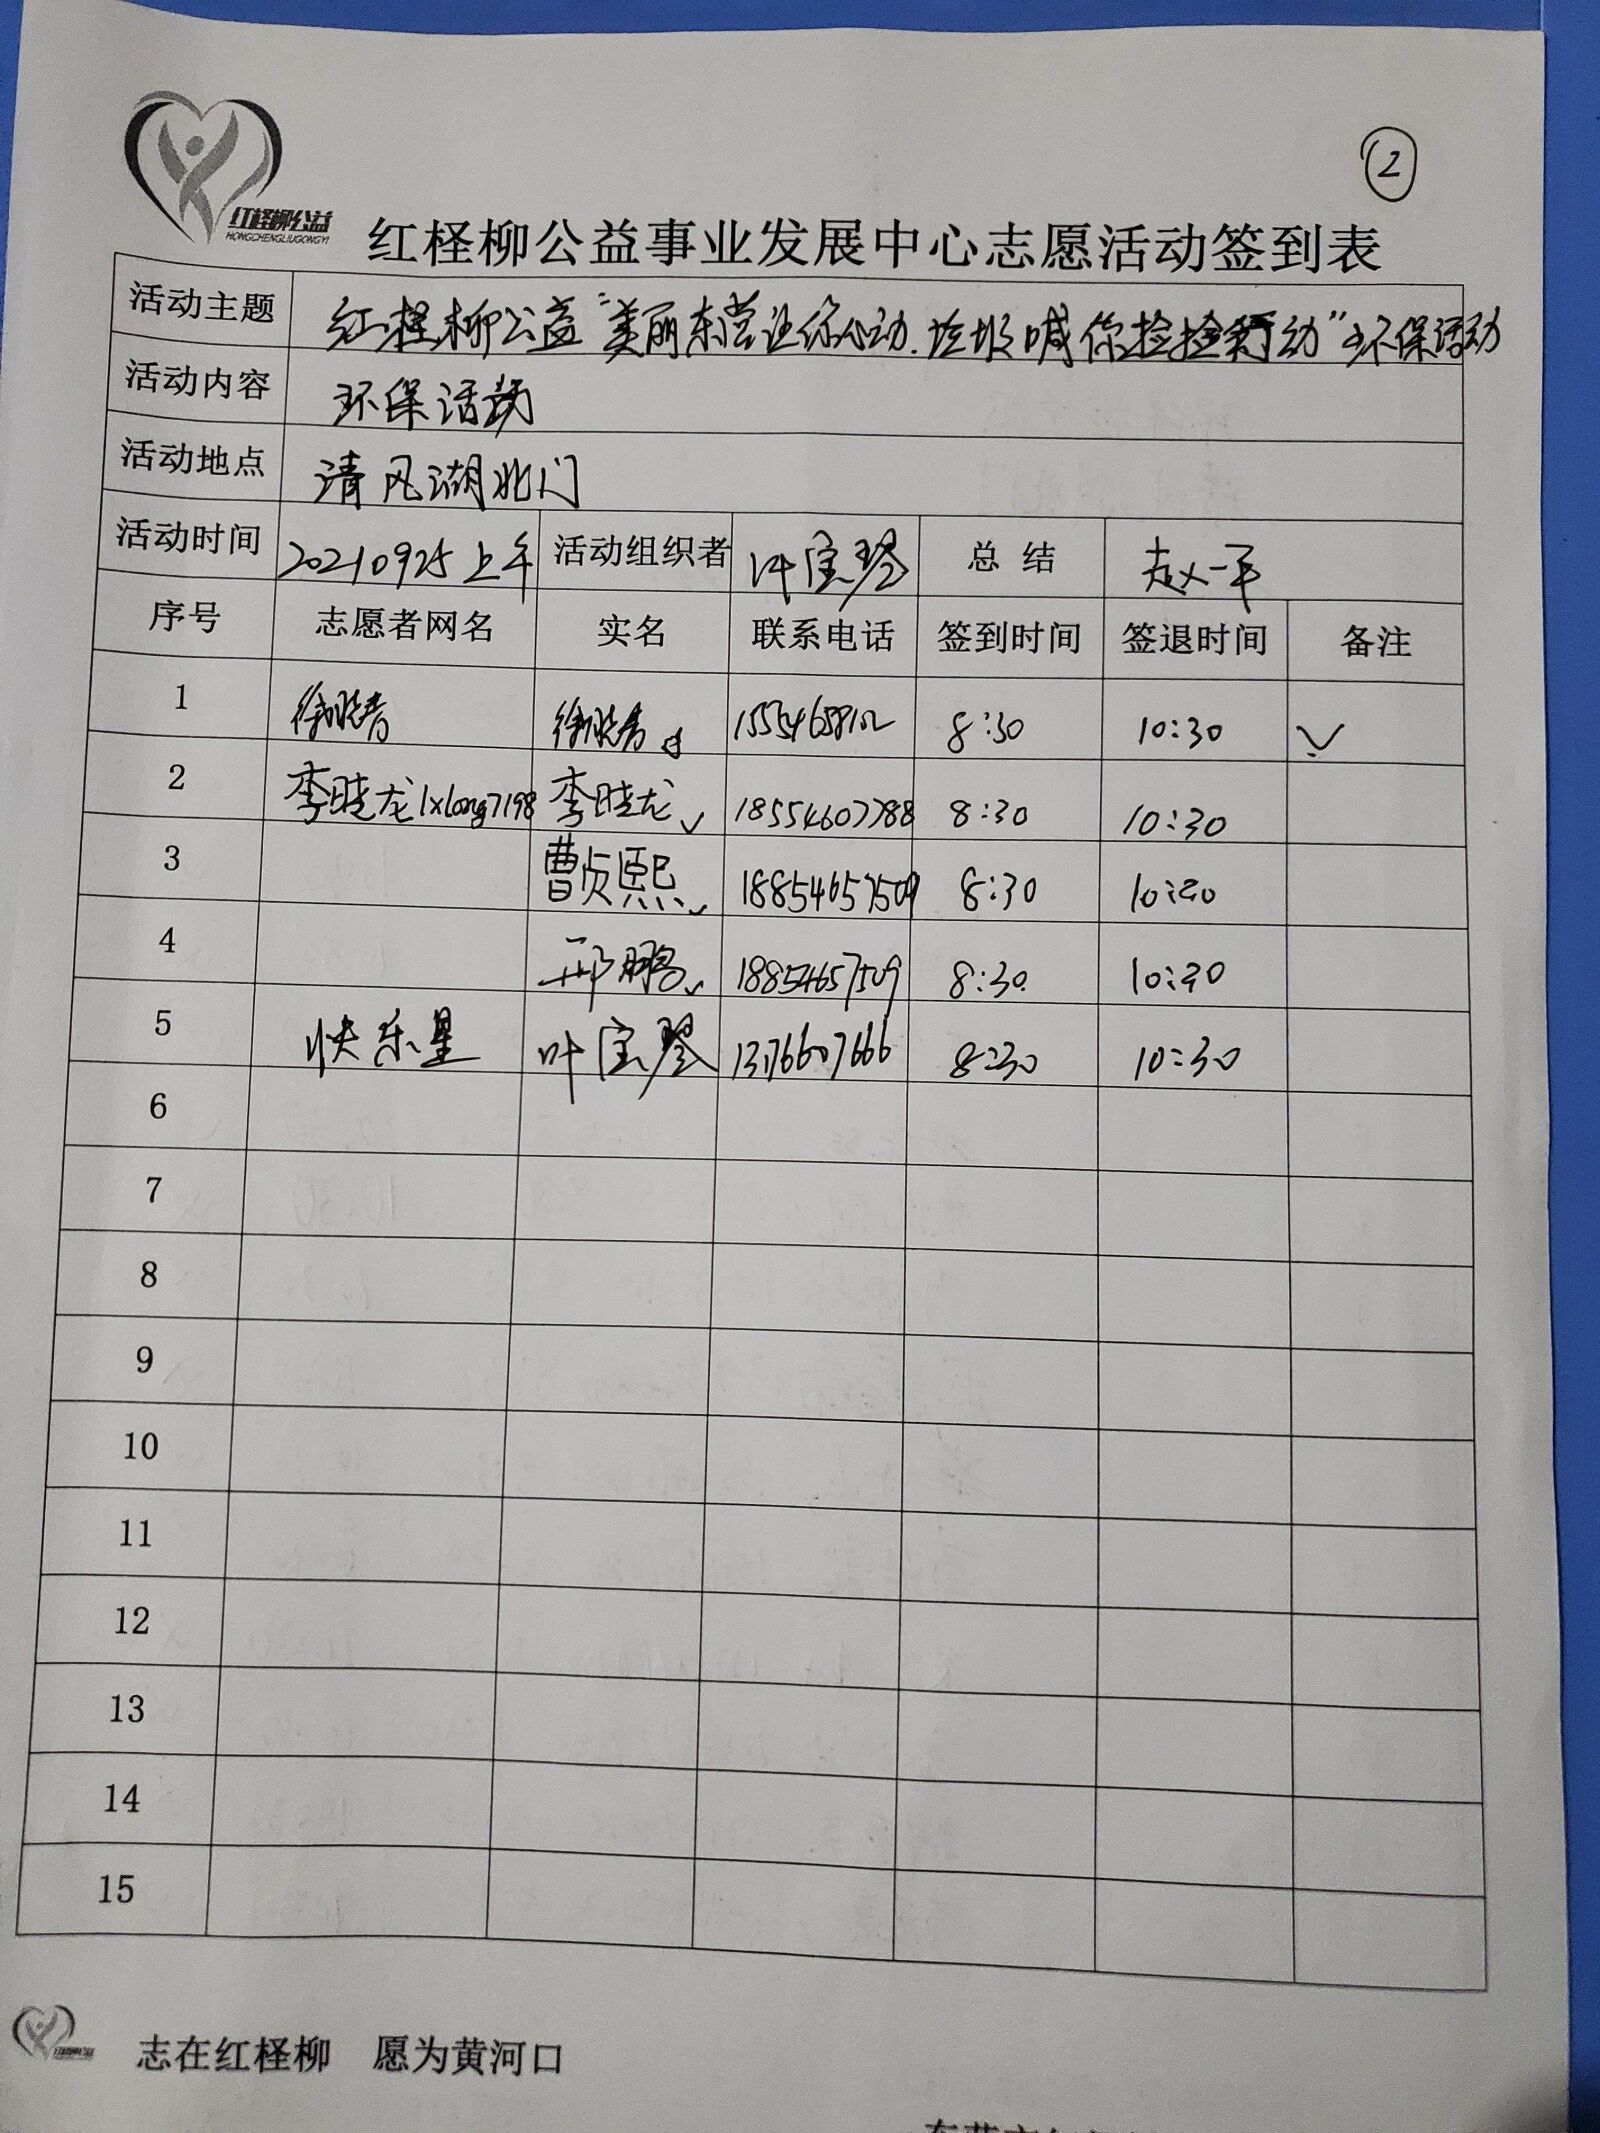 ②
红柽柳公益
HONGCHENGLIUGONGYI
红柽柳公益事业发展中心志愿活动签到表
活动主题 红柽柳公益“美丽东营让你心动.垃圾喊你捡捡行动”环保活动
活动内容 环保活动
活动地点 清风湖北门
活动时间 20210925上午 活动组织者 叶宝琴 总结 赵一平
序号 志愿者网名 实名 联系电话 签到时间 签退时间 备注
1 徐晓青 徐晓青 8:30 10:30 ✓
2 李晓龙lxlong7198 李晓龙✓ 18554607788 8:30 10:30
3 曹贞熙✓ 18854657509 8:30 10:30
4 邢鹏✓ 18854657509 8:30 10:30
5 快乐星 叶宝琴 13176607666 8:30 10:30
6
7
8
9
10
11
12
13
14
15
志在红柽柳 愿为黄河口